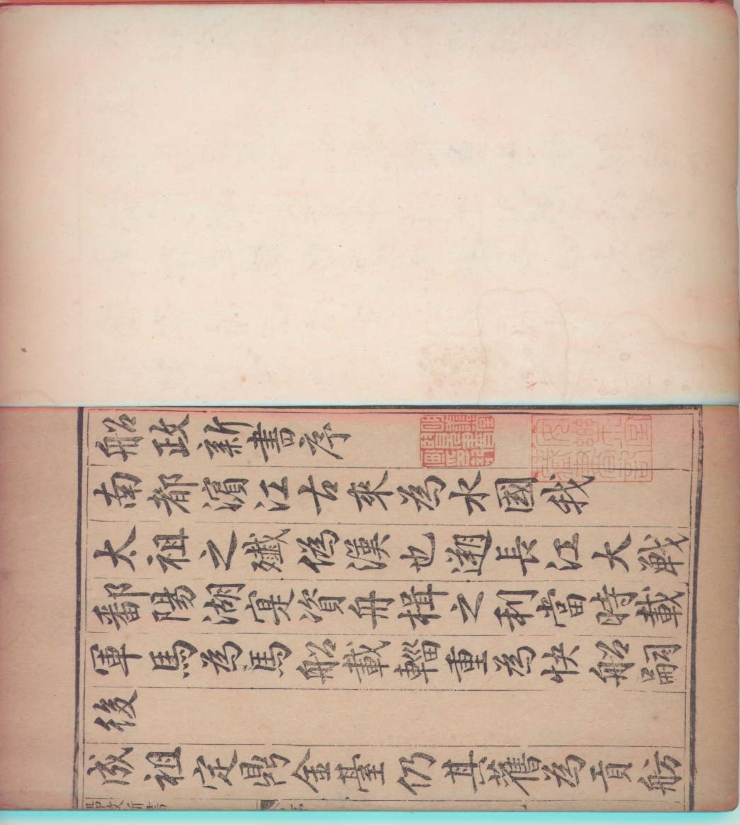 船政新書序
南都濱江古來為水國我
太祖之殲僞漢也遡長江大戰
鄱陽湖寔資舟楫之利當時載
軍馬為馬船載輜重為快船嗣
後
成祖定鼎金臺仍其舊為貢舫